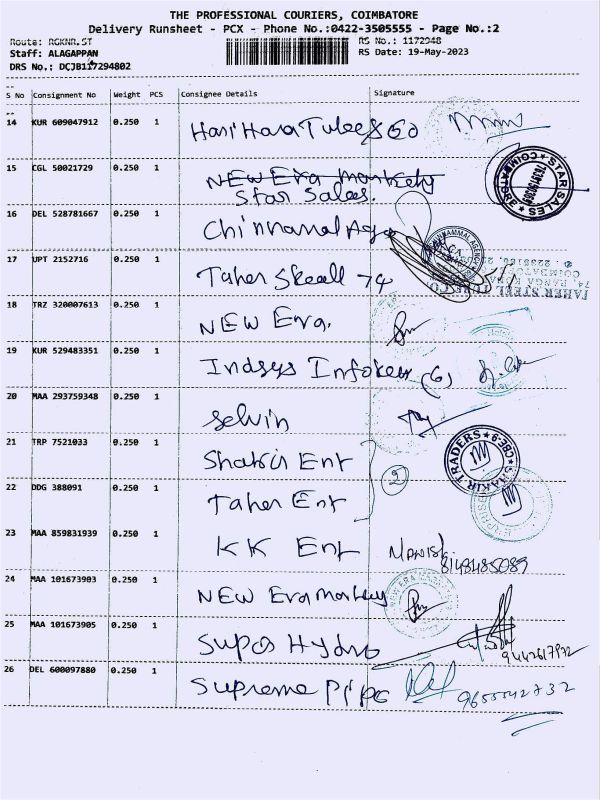 THE PROFESSIONAL COURIERS, COIMBATORE
Delivery Runsheet - PCX - Phone No.:0422-3505555 - Page No.:2
Route: RGKNR.ST RS No.: 1172948
Staff: ALAGAPPAN RS Date: 19-May-2023
DRS No.: DCJB117294802
S No Consignment No Weight PCS Consignee Details Signature
14 KUR 609047912 0.250 1
Hari Hara Tubes & Co
15 CGL 50021729 0.250 1
NEW Era Markety
Star Sales.
STAR SALES COIMBATORE
16 DEL 528781667 0.250 1
17 UPT 2152716 0.250 1
Taher Steall 74
TAHER STEEL
18 TRZ 320007613 0.250 1
NEW Era.
19 KUR 529483351 0.250 1
Indsys Infotew (G)
20 MAA 293759348 0.250 1
Selvin
21 TRP 7521033 0.250 1
Shakir Ent
SHAKIR TRADERS CBE-9
22 DDG 388091 0.250 1
Taher Ent
2
23 MAA 859831939 0.250 1
KK Ent
8148485089
24 MAA 101673903 0.250 1
NEW Era Markety
NEW ERA
25 MAA 101673905 0.250 1
Supor Hydro
9442617972
26 DEL 600097880 0.250 1
Supreme Pipe
9655542732